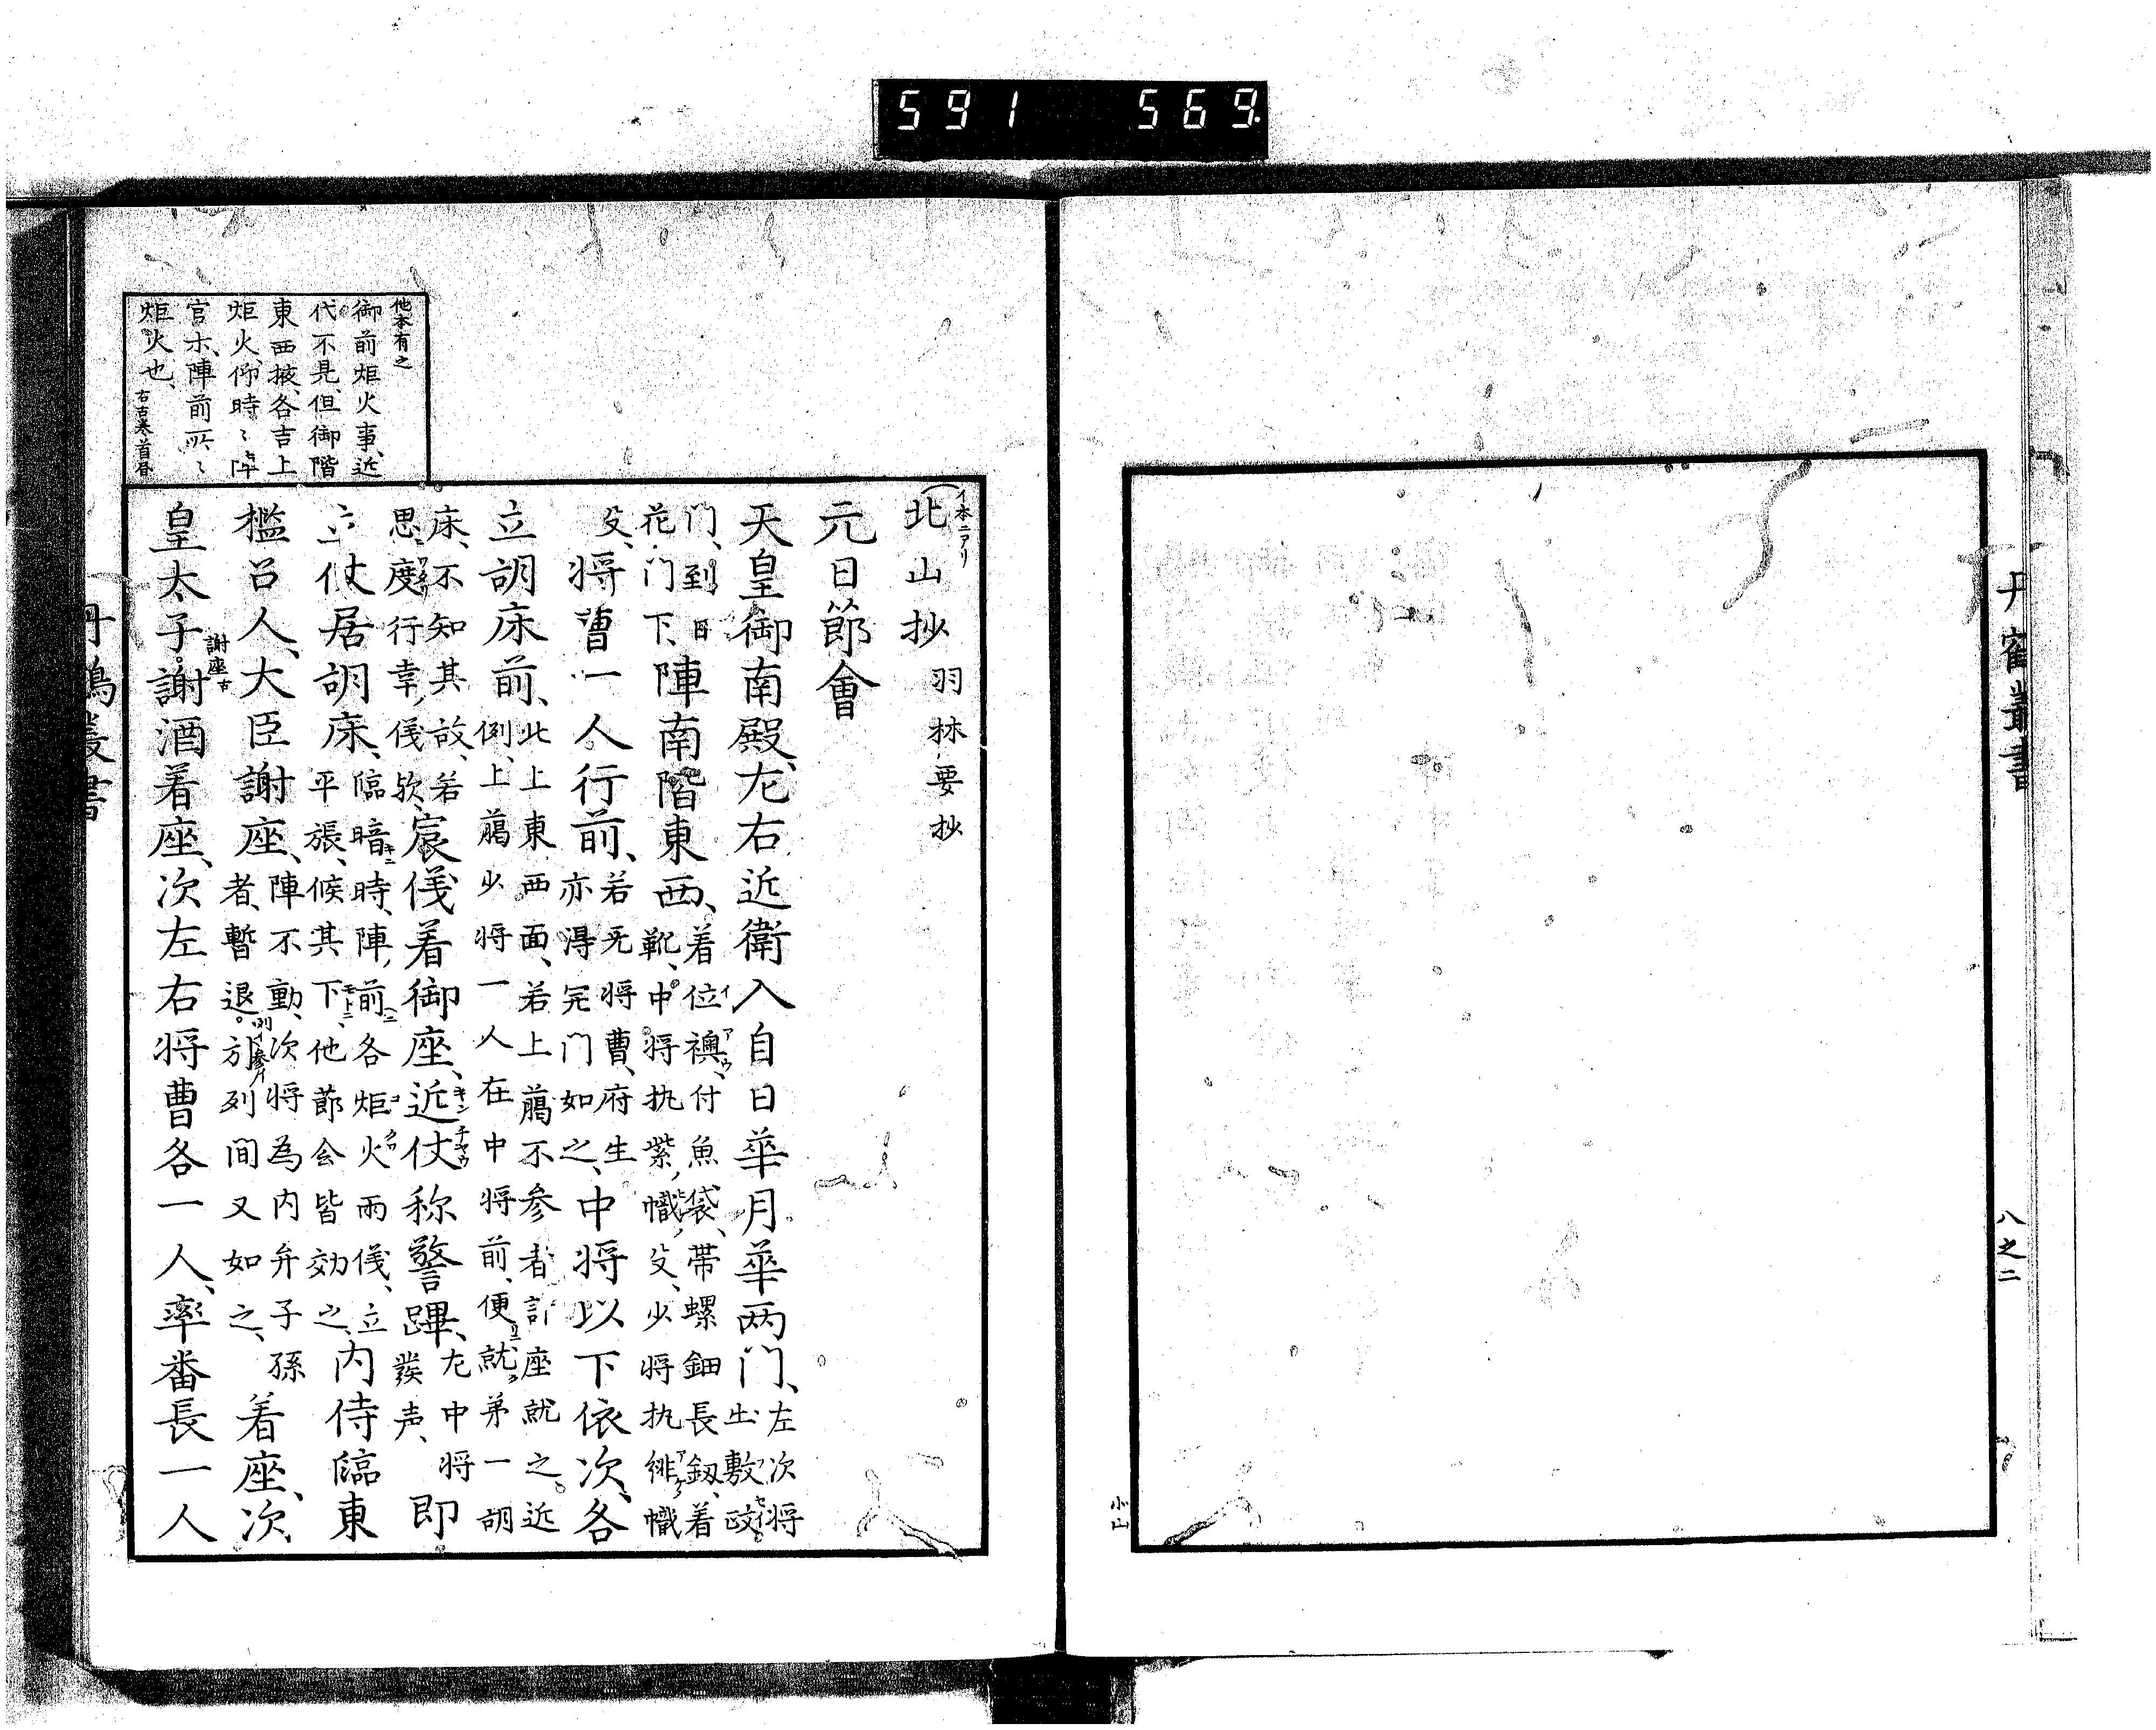 591 569
丹鶴叢書
八之二
他本有之
御前炬火事、近
代不見、但御階
東西掖、各吉上
炬火、仰時〻陣
官木、陣前所〻
炬火也、
イ本ニアリ
北山抄 羽林要抄
元日節會
天皇御南殿、左右近衛入自日華月華两门、左次将
出敷政
门、到日
花门下、陣南階東西、着位襖、付魚袋、帶螺鈿長釼、着
靴、中将执紫幟、
少将执緋幟
将曹一人行前、若无将曹、府生
亦得、门如之、中将以下依次、各
立胡床前、此上東西面、若上﨟不参者計座就之。近
例、上﨟少将一人在中将前、便就第一胡
床、不知其故、若
思度行幸儀欤、宸儀着御座、近仗称警蹕、左中将
發声、即
立仗居胡床、臨暗時、陣前各炬火雨儀、立
平張、候其下、他莭会皆効之、内侍臨東
檻召人、大臣謝座、陣不動、次将為内弁子孫
者、暫退。列間又如之、着座、次
謝座
皇太子謝酒着座、次左右将曹各一人、率番長一人
丹鶴叢書